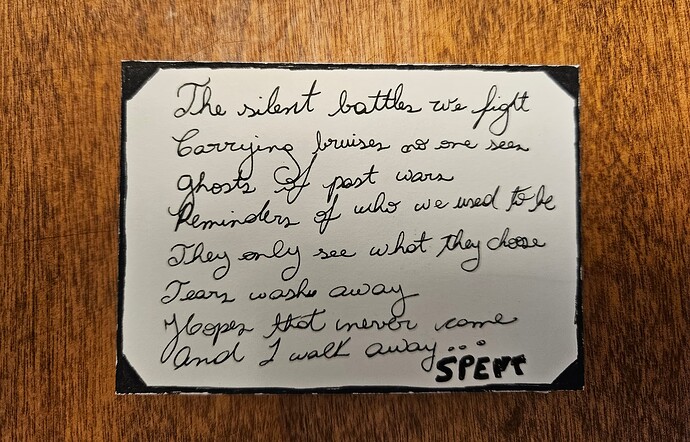 The silent battles we fight
Carrying bruises no one sees
Ghosts Of past wars
Reminders of who we used to be
They only see what they choose
Tears wash away
Hopes that never came
And I walk away...
SPENT